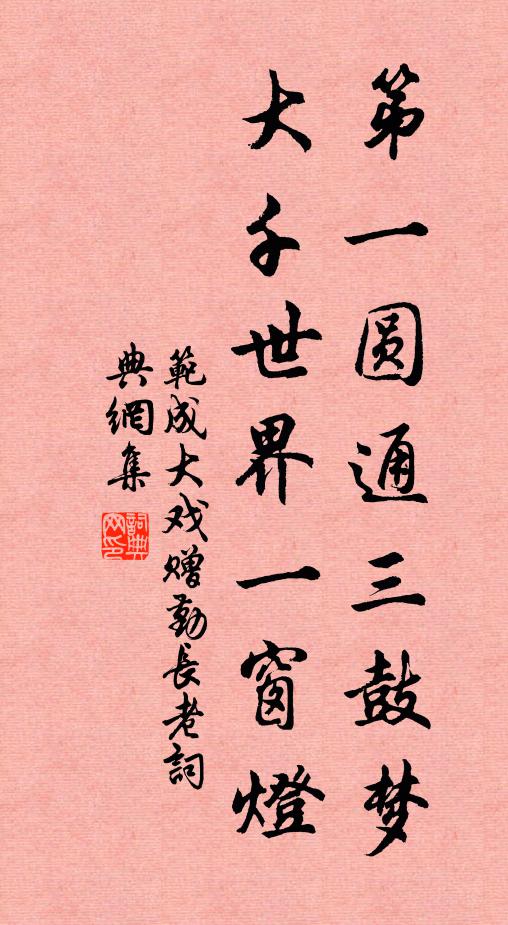 第一圆通三鼓梦
大千世界一窗燈
範成大戏赠勤長老詞
典網集
詞典網印